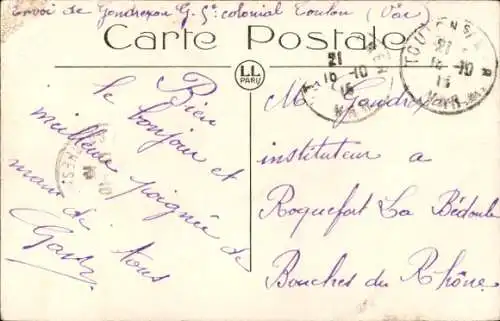 Envoi de Gendreau G. Sᵗ colonial Toulon (Var)
Carte Postale
LL
PARIS
Bien
le bonjour et
meilleure poignée de
main de tous
M. Gendreau
instituteur a
Roquefort La Bédoule
Bouches du Rhône
21
16-10
15
TOULON
21
16-10
15
VAR